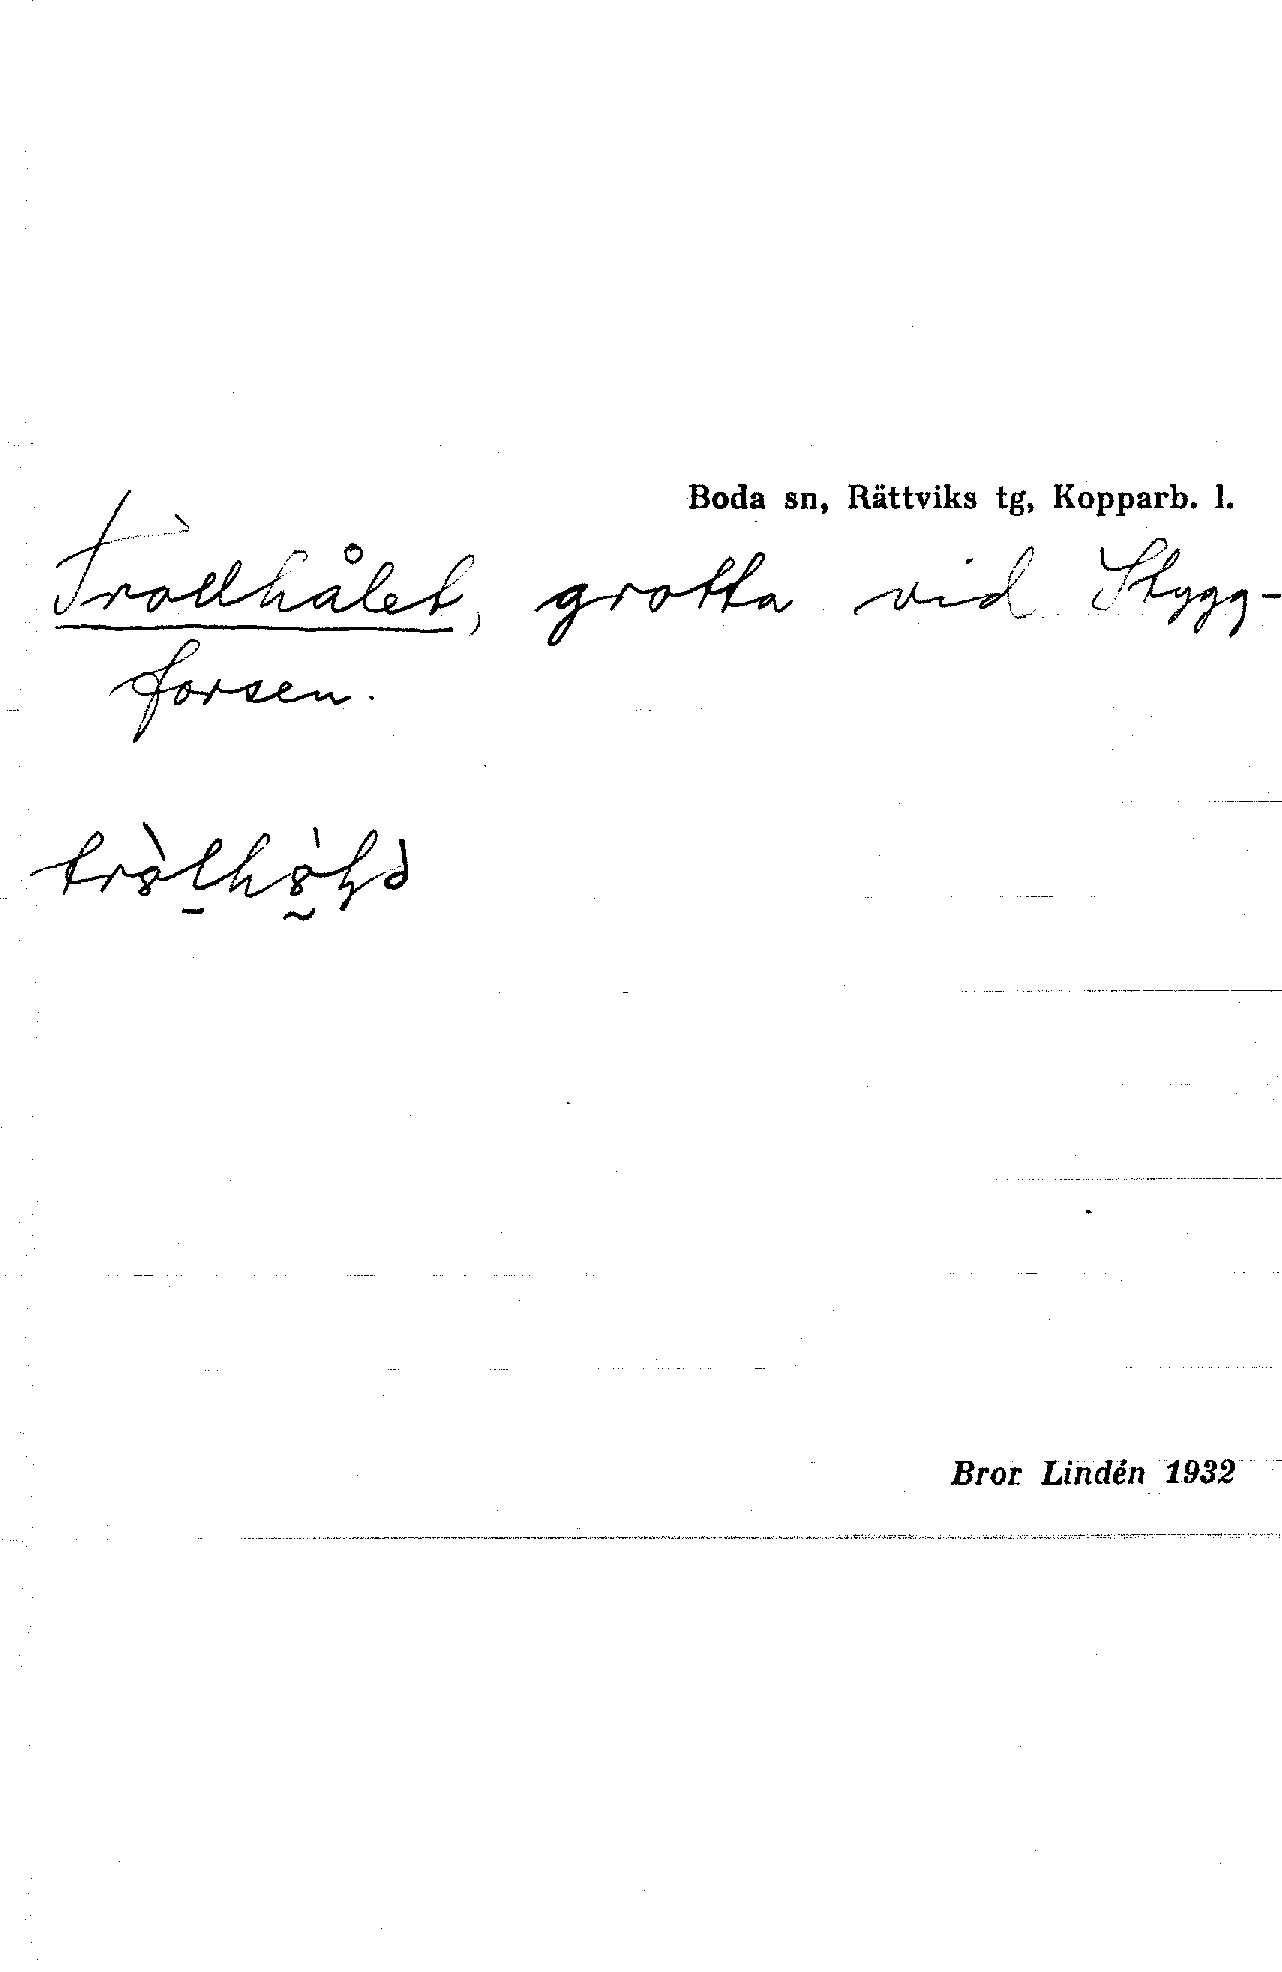 Boda sn, Rättviks tg, Kopparb. l.
Trollhålet, grotta vid Stygg-
forsen.
Bror Lindén 1932